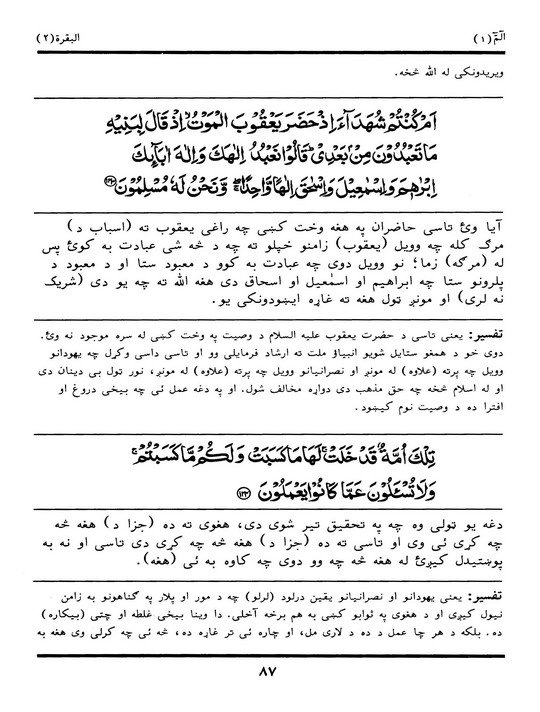 الٓمّٓ (۱)
البقرة (۲)
ویریدونکی له الله څخه.
اَمْ كُنْتُمْ شُهَدَآءَ اِذْ حَضَرَ يَعْقُوْبَ الْمَوْتُ اِذْ قَالَ لِبَنِيْهِ
مَا تَعْبُدُوْنَ مِنْۢ بَعْدِيْ قَالُوْا نَعْبُدُ اِلٰهَكَ وَاِلٰهَ اٰبَآئِكَ
اِبْرٰهٖمَ وَاِسْمٰعِيْلَ وَاِسْحٰقَ اِلٰهًا وَّاحِدًا وَّنَحْنُ لَهٗ مُسْلِمُوْنَ ﴿۱۳۳﴾
آیا وئ تاسی حاضران په هغه وخت کښی چه راغی یعقوب ته (اسباب د)
مرګ کله چه وویل (یعقوب) زامنو خپلو ته چه د څه شی عبادت به کوئ پس
له (مرګه) زما؛ نو وویل دوی چه عبادت به کوو د معبود ستا او د معبود د
پلرونو ستا چه ابراهیم او اسمٰعیل او اسحاق دی هغه الله ته چه یو دی (شریک
نه لری) او مونږ ټول هغه ته غاړه ایښودونکی یو.
تفسیر: یعنی تاسی د حضرت یعقوب علیه السلام د وصیت په وخت کښی له سره موجود نه وئ.
دوی خو د همغو ستایل شویو انبیاؤ ملت ته ارشاد فرمایلی وو او تاسی داسی وکړل چه یهودانو
وویل چه پرته (علاوه) له مونږ او نصرانیانو وویل چه پرته (علاوه) له مونږ، نور ټول بی دینان دی
او له اسلام څخه چه حق مذهب دی دواړه مخالف شول. او په دغه عمل ئی چه بیخی دروغ او
افترا ده د وصیت نوم کیښود.
تِلْكَ اُمَّةٌ قَدْ خَلَتْ لَهَا مَا كَسَبَتْ وَلَكُمْ مَّا كَسَبْتُمْ
وَلَا تُسْـَٔلُوْنَ عَمَّا كَانُوْا يَعْمَلُوْنَ ﴿۱۳۴﴾
دغه یو ټولی وه چه په تحقیق تیر شوی دی، هغوی ته ده (جزا د) هغه څه
چه کړی ئی وی او تاسی ته ده (جزا د) هغه څه چه کړی دی تاسی او نه به
پوښتیدل کیږئ له هغه څه چه وو دوی چه کاوه به ئی (هغه).
تفسیر: یعنی یهودانو او نصرانیانو یقین درلود (لرلو) چه د مور او پلار په ګناهونو به زامن
نیول کیږی او د هغوی په ثوابو کښی به هم برخه آخلی. دا وینا بیخی غلطه او چتی (بیکاره)
ده. بلکه د هر چا عمل د ده د لاری مل، او چاره ئی تر غاړه ده، څه ئی چه کړلی وی هغه به
۸۷